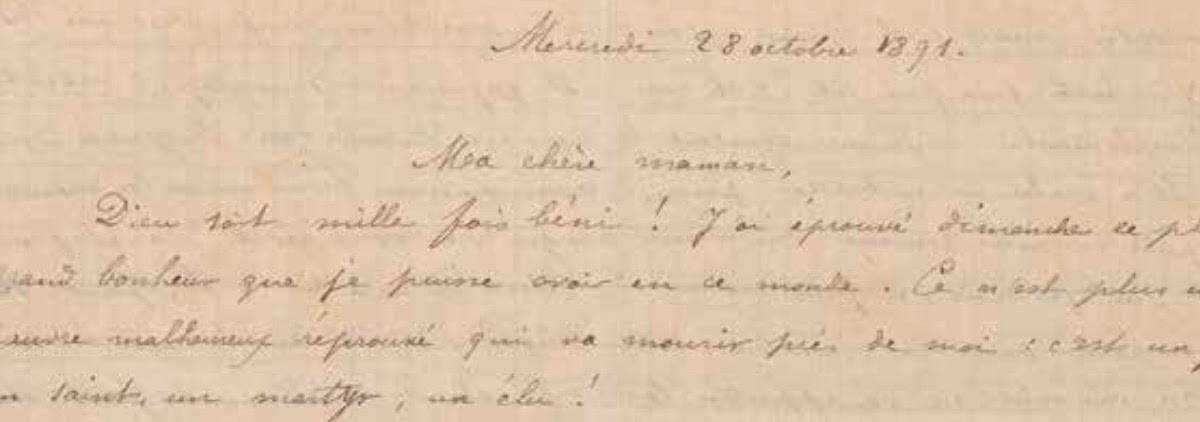 Mercredi 28 octobre 1891.
Ma chère maman,
Dieu soit mille fois béni ! J'ai éprouvé dimanche le pl
rand bonheur que je puisse avoir en ce monde. Ce n'est plus u
auvre malheureux réprouvé qui va mourir près de moi : c'est un j
n saint, un martyr, un élu !